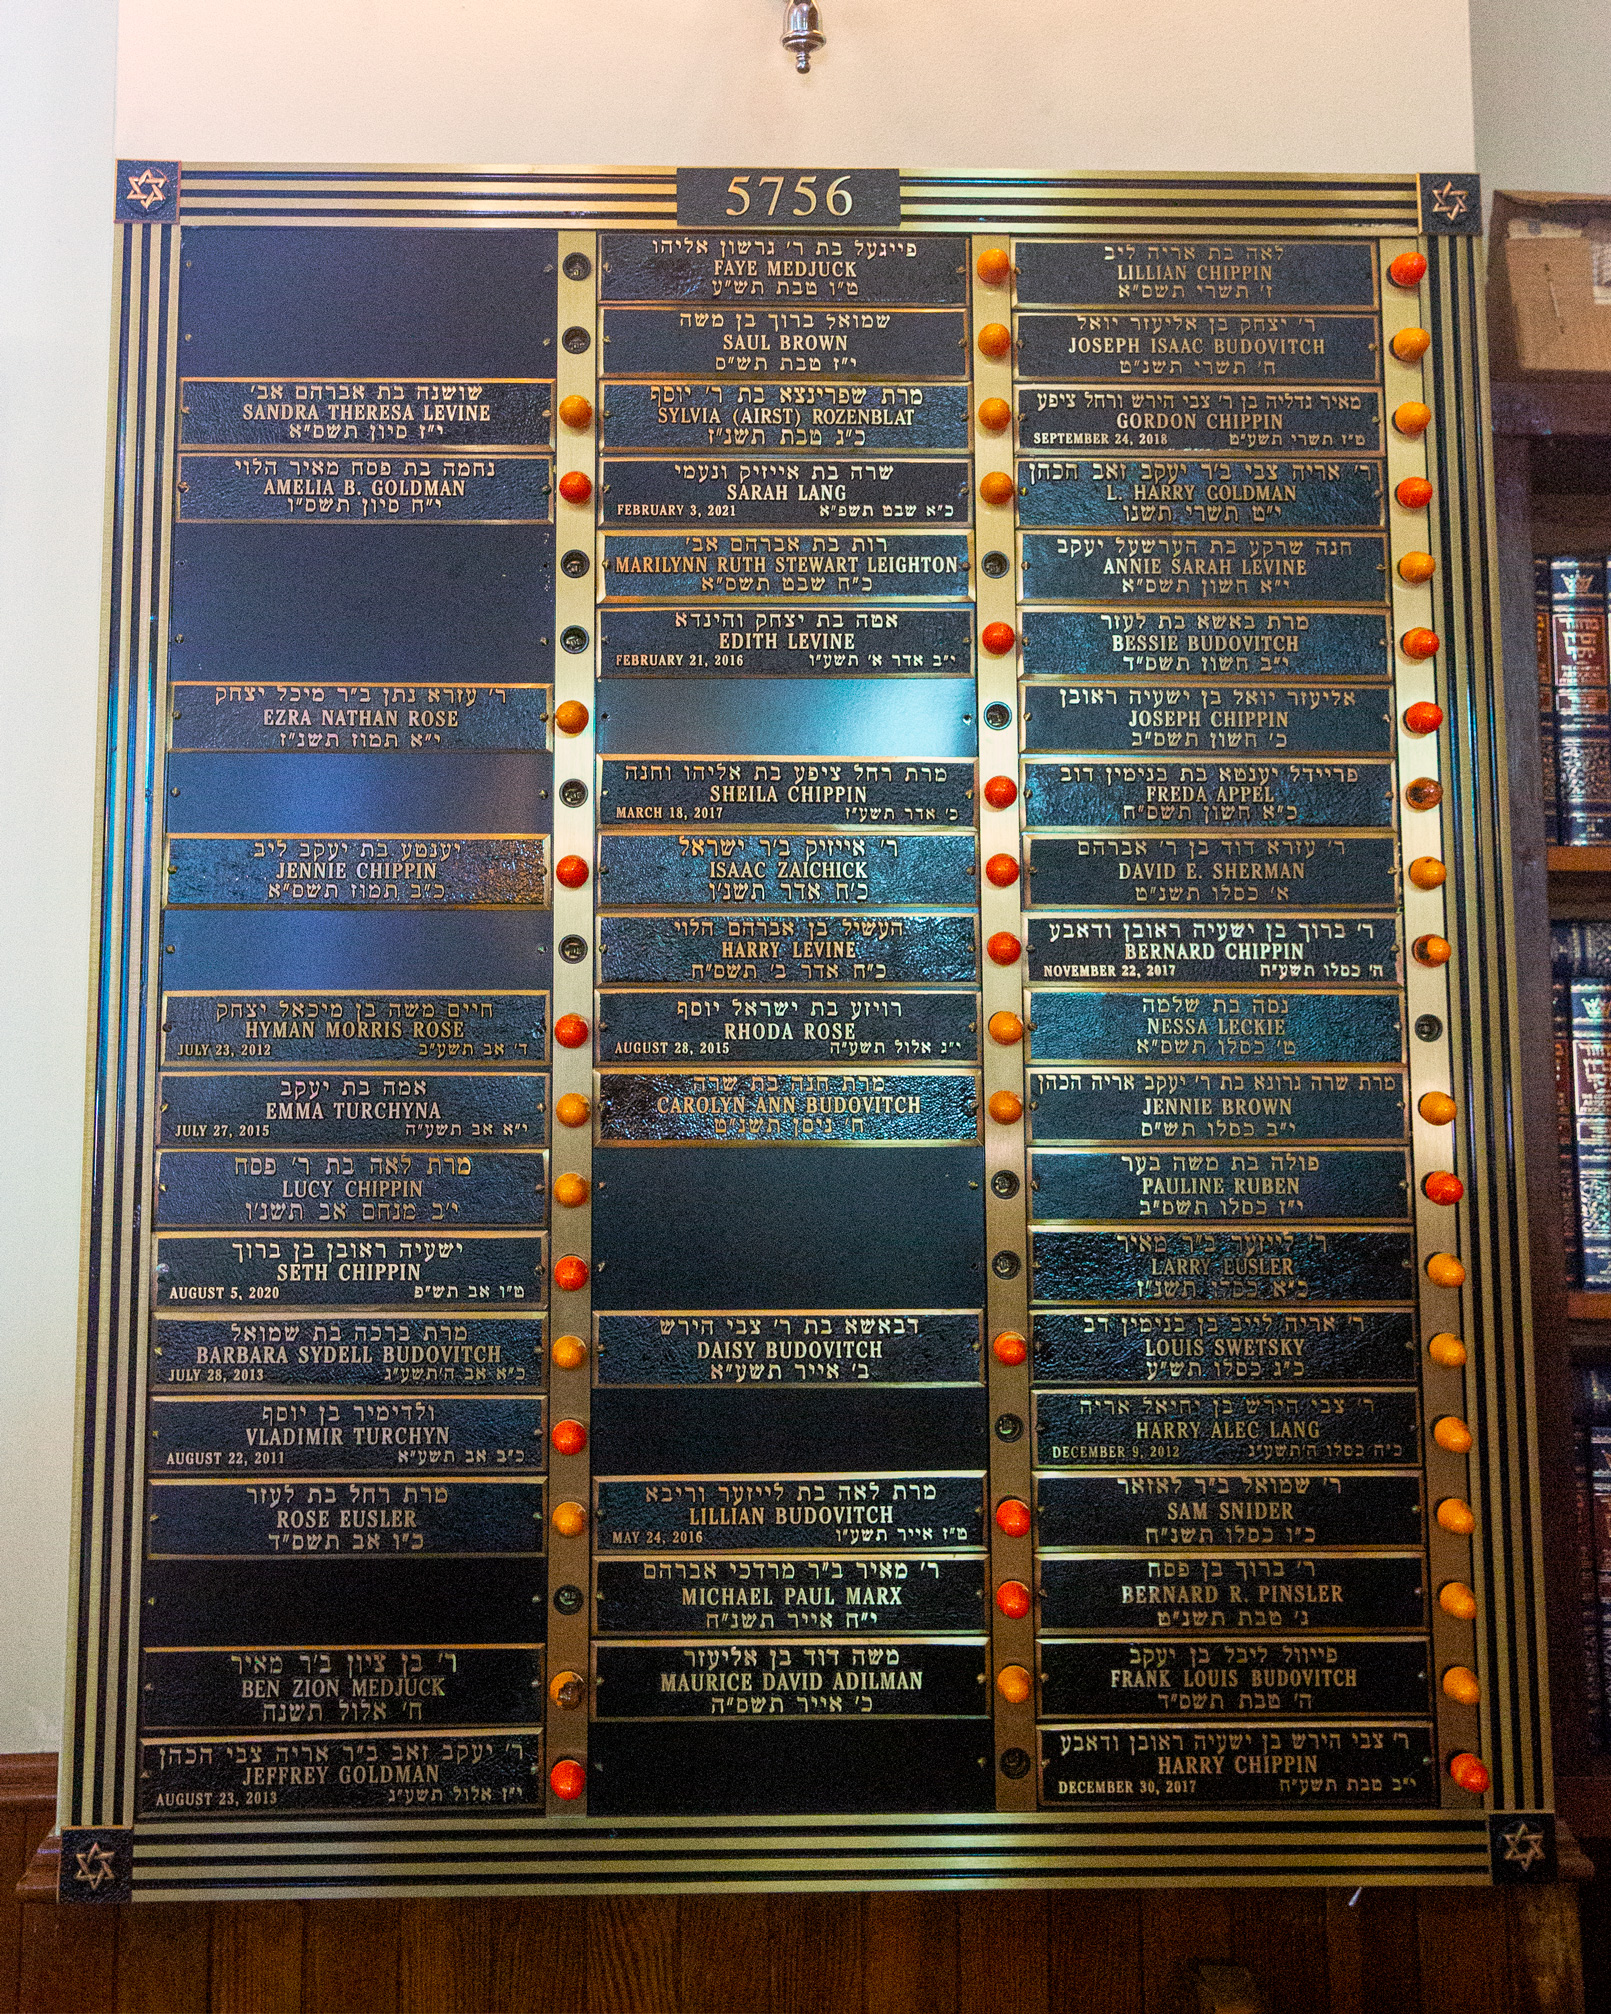 5756
שושנה בת אברהם אב׳
SANDRA THERESA LEVINE
י״ז סיון תשס״א
נחמה בת פסח מאיר הלוי
AMELIA B. GOLDMAN
י״ח סיון תשס״ו
ר׳ עזרא נתן ב״ר מיכל יצחק
EZRA NATHAN ROSE
י״א תמוז תשנ״ז
יענטע בת יעקב ליב
JENNIE CHIPPIN
כ״ב תמוז תשס״א
חיים משה בן מיכאל יצחק
HYMAN MORRIS ROSE
JULY 23, 2012 ד׳ אב תשע״ב
אמה בת יעקב
EMMA TURCHYNA
JULY 27, 2015 י״א אב תשע״ה
מרת לאה בת ר׳ פסח
LUCY CHIPPIN
י״ב מנחם אב תשנ״ו
ישעיה ראובן בן ברוך
SETH CHIPPIN
AUGUST 5, 2020 ט״ו אב תש״פ
מרת ברכה בת שמואל
BARBARA SYDELL BUDOVITCH
JULY 28, 2013 כ״א אב ה׳תשע״ג
ולדימיר בן יוסף
VLADIMIR TURCHYN
AUGUST 22, 2011 כ״ב אב תשע״א
מרת רחל בת לעזר
ROSE EUSLER
כ״ו אב תשס״ד
ר׳ בן ציון ב״ר מאיר
BEN ZION MEDJUCK
ח׳ אלול תשנה
ר׳ יעקב זאב ב״ר אריה צבי הכהן
JEFFREY GOLDMAN
AUGUST 23, 2013 י״ז אלול תשע״ג
פייגעל בת ר׳ גרשון אליהו
FAYE MEDJUCK
ט״ו טבת תש״ע
שמואל ברוך בן משה
SAUL BROWN
י״ז טבת תש״ס
מרת שפרינצא בת ר׳ יוסף
SYLVIA (AIRST) ROZENBLAT
כ״ג טבת תשנ״ז
שרה בת אייזיק ונעמי
SARAH LANG
FEBRUARY 3, 2021 כ״א שבט תשפ״א
רות בת אברהם אב׳
MARILYNN RUTH STEWART LEIGHTON
כ״ח שבט תשס״א
אטה בת יצחק והינדא
EDITH LEVINE
FEBRUARY 21, 2016 י״ב אדר א׳ תשע״ו
מרת רחל ציפע בת אליהו וחנה
SHEILA CHIPPIN
MARCH 18, 2017 כ׳ אדר תשע״ז
ר׳ אייזיק ב״ר ישראל
ISAAC ZAICHICK
כ״ח אדר תשנ״ו
העשיל בן אברהם הלוי
HARRY LEVINE
כ״ח אדר ב׳ תשס״ח
רויזע בת ישראל יוסף
RHODA ROSE
AUGUST 28, 2015 י״ג אלול תשע״ה
מרת חנה בת שרה
CAROLYN ANN BUDOVITCH
ח׳ ניסן תשנ״ט
דבאשא בת ר׳ צבי הירש
DAISY BUDOVITCH
ב׳ אייר תשע״א
מרת לאה בת לייזער וריבא
LILLIAN BUDOVITCH
MAY 24, 2016 ט״ז אייר תשע״ו
ר׳ מאיר ב״ר מרדכי אברהם
MICHAEL PAUL MARX
י״ח אייר תשנ״ח
משה דוד בן אליעזר
MAURICE DAVID ADILMAN
כ׳ אייר תשס״ה
לאה בת אריה ליב
LILLIAN CHIPPIN
ז׳ תשרי תשס״א
ר׳ יצחק בן אליעזר יואל
JOSEPH ISAAC BUDOVITCH
ח׳ תשרי תשנ״ט
מאיר גדליה בן ר׳ צבי הירש ורחל ציפע
GORDON CHIPPIN
SEPTEMBER 24, 2018 ט״ז תשרי תשע״ט
ר׳ אריה צבי ב״ר יעקב זאב הכהן
L. HARRY GOLDMAN
י״ט תשרי תשנו
חנה שרקע בת הערשעל יעקב
ANNIE SARAH LEVINE
י״א חשון תשס״א
מרת באשא בת לעזר
BESSIE BUDOVITCH
י״ב חשון תשס״ד
אליעזר יואל בן ישעיה ראובן
JOSEPH CHIPPIN
כ׳ חשון תשס״ב
פריידל יענטא בת בנימין דוב
FREDA APPEL
כ״א חשון תשס״ח
ר׳ עזרא דוד בן ר׳ אברהם
DAVID E. SHERMAN
א׳ כסלו תשנ״ט
ר׳ ברוך בן ישעיה ראובן ודאבע
BERNARD CHIPPIN
NOVEMBER 22, 2017 ה׳ כסלו תשע״ח
נסה בת שלמה
NESSA LECKIE
ט׳ כסלו תשס״א
מרת שרה גרונא בת ר׳ יעקב אריה הכהן
JENNIE BROWN
י״ב כסלו תש״ס
פולה בת משה בער
PAULINE RUBEN
י״ז כסלו תשס״ב
ר׳ לייזער ב״ר מאיר
LARRY EUSLER
כ״א כסלו תשנ״ז
ר׳ אריה לייב בן בנימין דב
LOUIS SWETSKY
כ״ג כסלו תש״ע
ר׳ צבי הירש בן יחיאל אריה
HARRY ALEC LANG
DECEMBER 9, 2012 כ״ה כסלו ה׳תשע״ג
ר׳ שמואל ב״ר לאזאר
SAM SNIDER
כ״ו כסלו תשנ״ח
ר׳ ברוך בן פסח
BERNARD R. PINSLER
ג׳ טבת תשנ״ט
פייוול ליבל בן יעקב
FRANK LOUIS BUDOVITCH
ה׳ טבת תשס״ד
ר׳ צבי הירש בן ישעיה ראובן ודאבע
HARRY CHIPPIN
DECEMBER 30, 2017 י״ב טבת תשע״ח